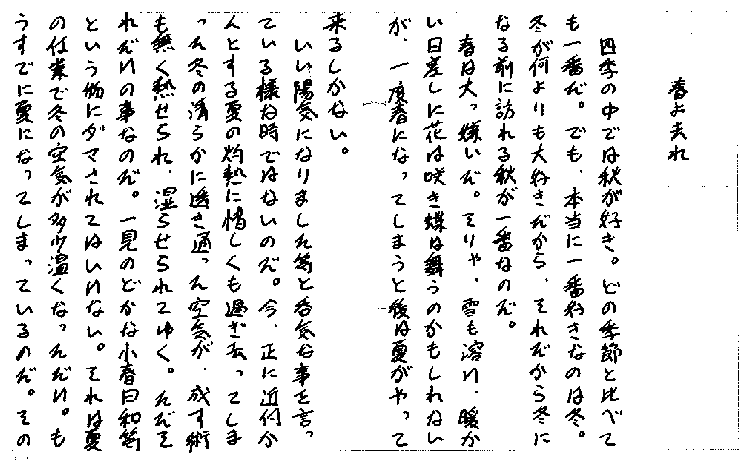 春よ去れ
四季の中では秋が好き。どの季節と比べて
も一番だ。でも、本当に一番好きなのは冬。
冬が何よりも大好きだから、それだから冬に
なる前に訪れる秋が一番なのだ。
春は大っ嫌いだ。そりゃ、雪も溶け、暖か
い日差しに花は咲き蝶は舞うのかもしれない
が、一度春になってしまうと後は夏がやって
来るしかない。
いい陽気になりました等と呑気な事を言っ
ている様な時ではないのだ。今、正に近付か
んとする夏の灼熱に惜しくも過ぎ去ってしま
った冬の清らかに透き通った空気が、成す術
も無く熱せられ、湿らせられてゆく。ただそ
れだけの事なのだ。一見のどかな小春日和等
という物にダマされてはいけない。それは夏
の仕業で冬の空気が多少温くなっただけ。も
うすでに夏になってしまっているのだ。その